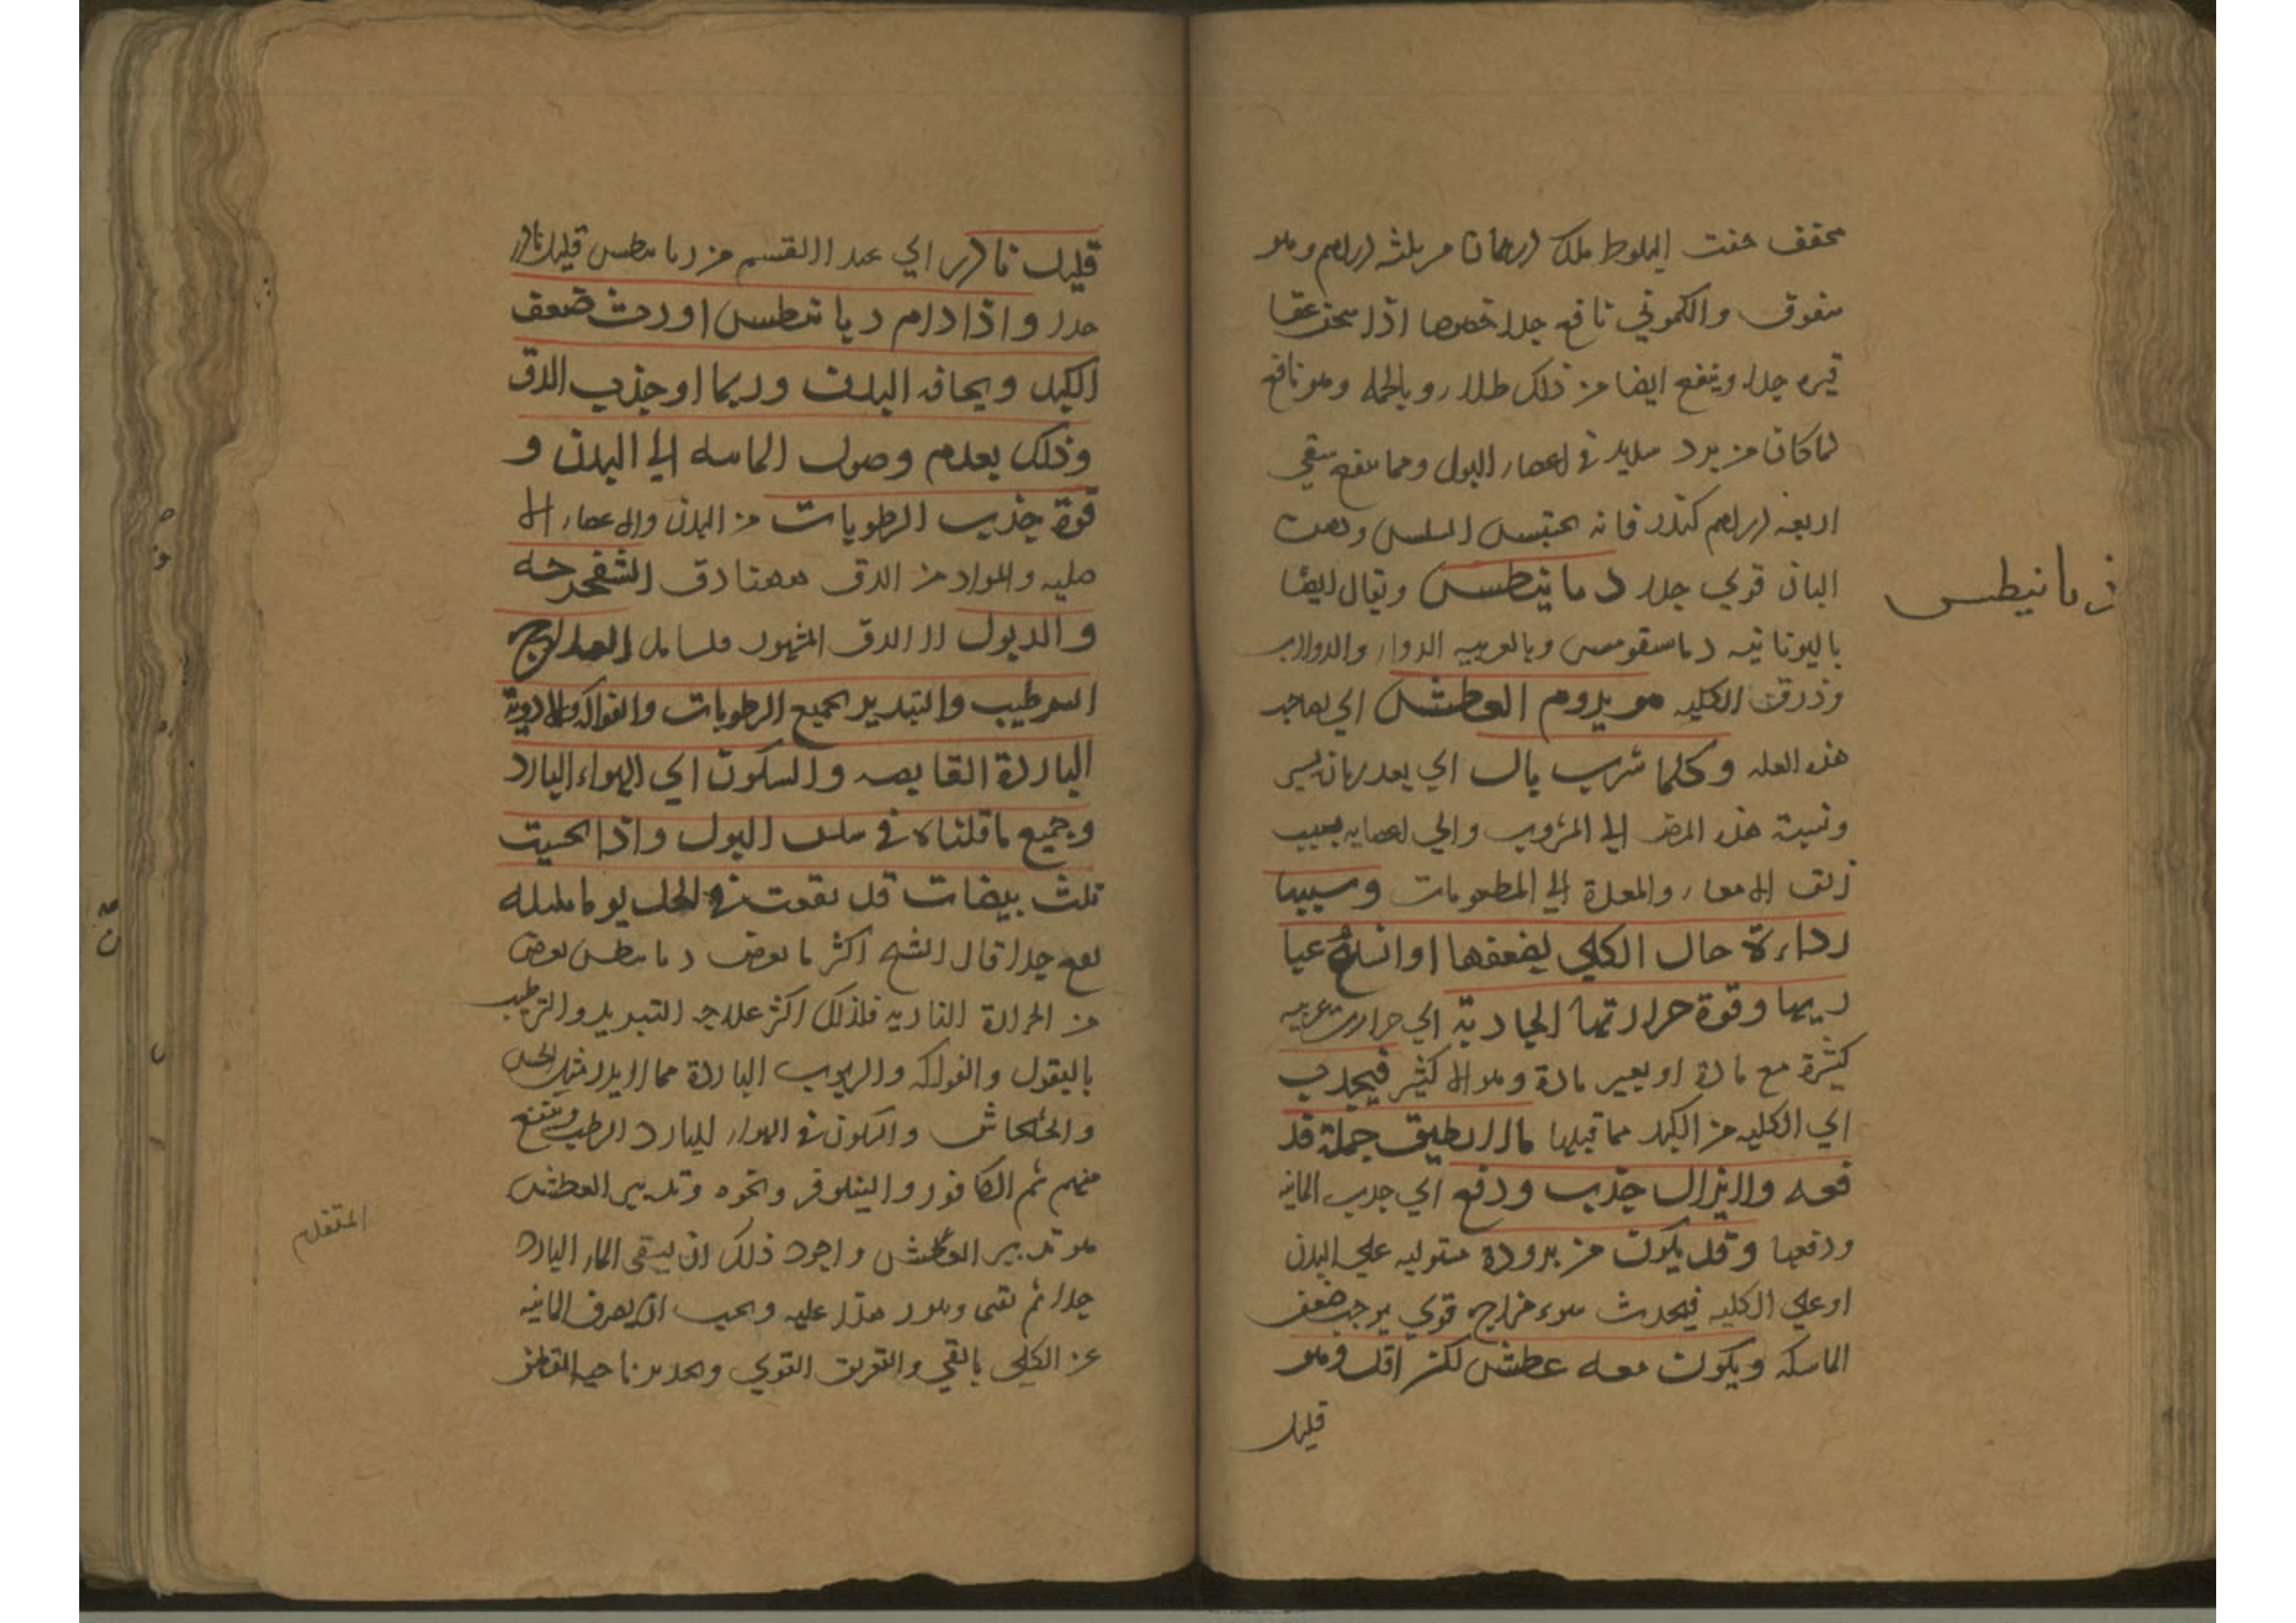 محفف جفت البلوط ملك درهمان مر ثلثة دراهم وهو
سفوف والكموني نافع جدا خصوصا اذا سحق عقا
قيره جدا وينفع ايضا من ذلك طلا وبالجملة وهو نافع
لما كان من برد في اعضاء البول ومما ينفع سقي
اربعة دراهم كندر فانه يحبس السلس ودهن
البان قوي جدا ديانيطس ويقال ايضا
باليونانية دياسقومس وبالعربية الدوار والدولاب
وزرق الكلية هو يدوم العطش اي لصاحب
هذه العلة وكلما شرب بال اي بعد زمان يسير
ونسبة هذا المرض الى المشروب والى اعضايه بسبب
زلق الامعاء والمعدة الى المطعومات وسببها
رداءة حال الكلي لضعفها او اتساع عيا
ريها وقوة حرارتها الجاذبة اي حرارت غريبة
كثيرة مع مادة او بغير مادة وهو الاكثر فيجذب
اي الكلية من الكبد مما قبلها ما لا يطيق حمله فد
فعه ولا يزال جذب ودفع اي جذب المائية
ودفعها وقد يكون من برودة مستولية على البدن
او على الكلية فيحدث سوء مزاج قوي يوجب ضعف
الماسكة ويكون معه عطش لكن اقل وهو
قليل
ديانيطس
قليل نادر اي هذا القسم من ديانيطس قليل نادر
جدا واذا دام ديانيطس اورث ضعف
الكبد ونحافة البدن وربما اوجب الدق
وذلك بعدم وصول المائية الى البدن و
قوة جذب الرطوبات من البدن والاعضاء الا
صلية والمراد من الدق ههنا دق الشيخوخة
والذبول لا الدق المشهور فليتامل العلاج
الترطيب والتبريد بجميع الرطوبات والفواكه والادوية
الباردة القابضة والسكون اي الهواء البارد
وجميع ما قلناه في سلس البول واذا تحسيت
ثلث بيضات قد نقعت في الخل يوما وليلة
نفع جدا قال الشيخ اكثر ما يعرض ديانيطس يعرض
من الحرارة النارية فلذلك اكثر علاجه التبريد والترطيب
بالبقول والفواكه والربوب الباردة مما لا يدر مثل الخس
والخشخاش والسكون في الهواء البارد الرطب
ثم الكافور والنيلوفر ونحوه وتدبير العطش
هو تدبير العطش واجود ذلك ان يسقى الماء البارد
جدا ثم تقيى عليه ويجب ان يصرف المائية
عن الكلي بالقي والتعريق القوي ناحية القطن